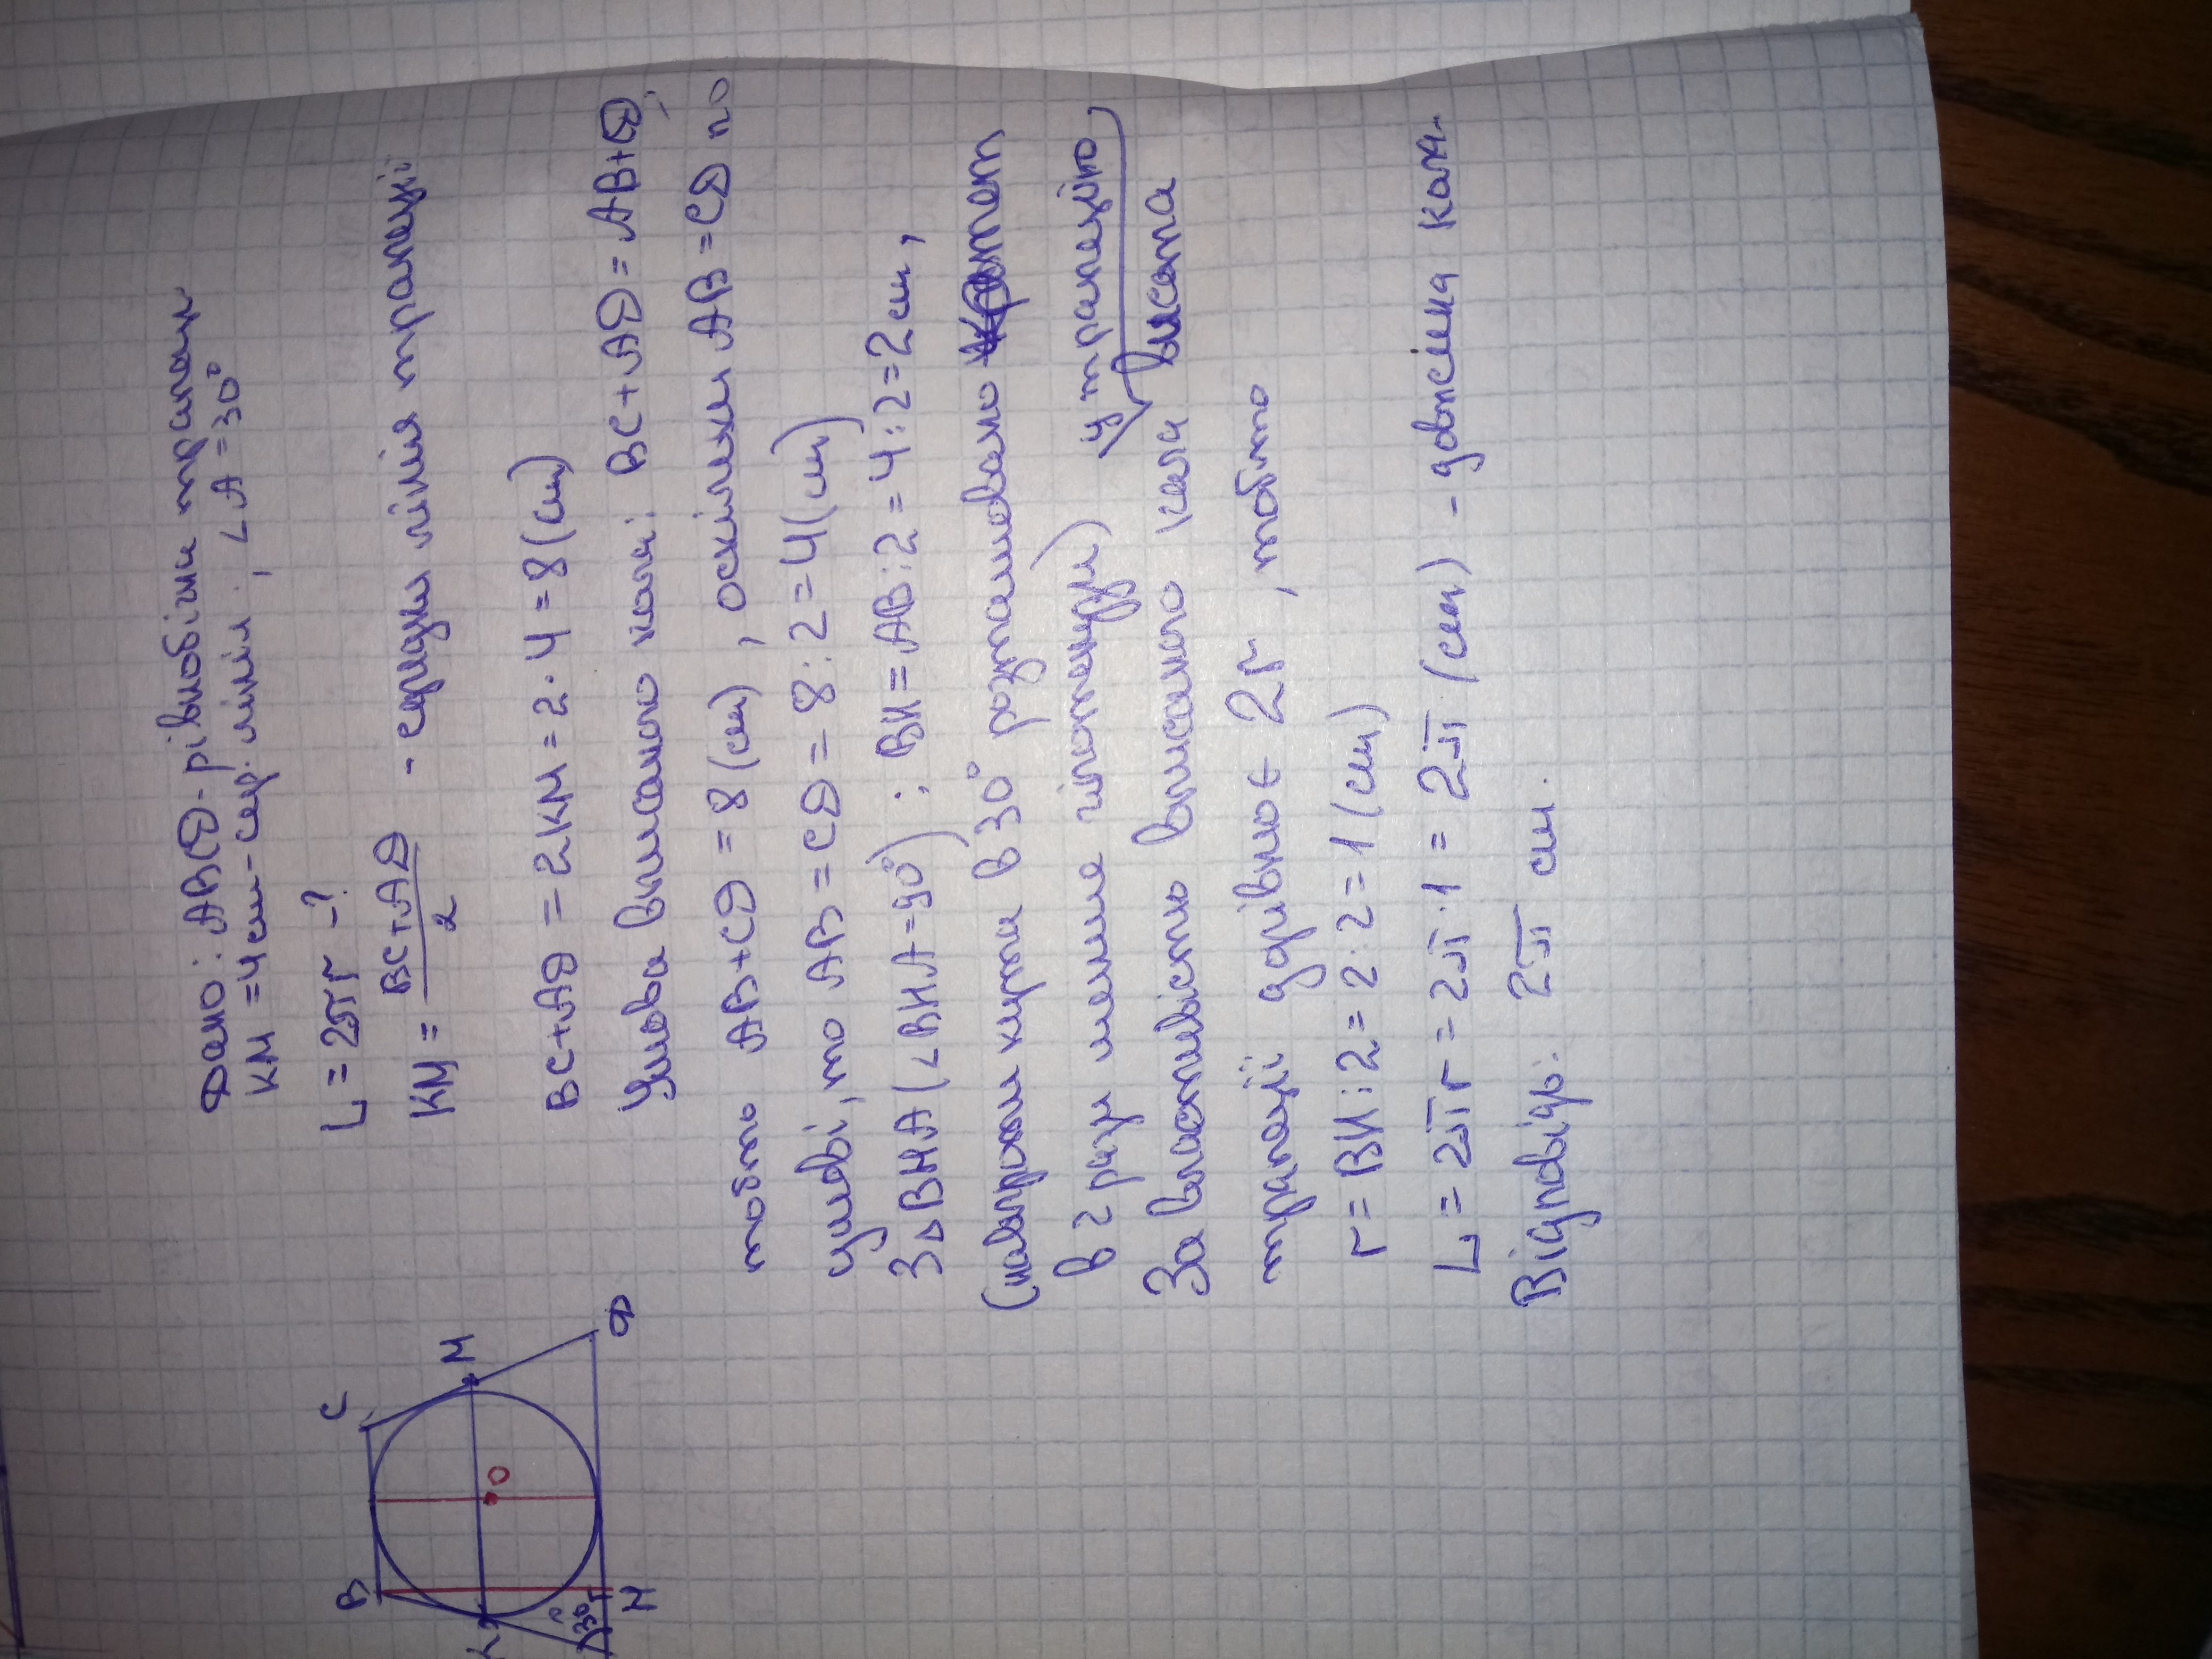 Дано: ABCD - рівнобічна трапеція
KM = 4 см - сер. лінія ; ∠A = 30°
L = 2πr - ?
KM = (BC + AD)/2 - середня лінія трапеції
BC + AD = 2KM = 2 · 4 = 8 (см)
Умова вписаного кола: BC + AD = AB + CD,
тобто AB + CD = 8 (см) , оскільки AB = CD по
умові, то AB = CD = 8 : 2 = 4 (см)
З △BHA (∠BHA = 90°) : BH = AB : 2 = 4 : 2 = 2 см ,
(навпроти кута в 30° розташовано катет
в 2 рази менше гіпотенузи)
За властивістю вписаного кола у трапецію висота
трапеції дорівнює 2r , тобто
r = BH : 2 = 2 : 2 = 1 (см)
L = 2πr = 2π · 1 = 2π (см) - довжина кола.
Відповідь: 2π см.
B
C
K
M
O
A
30°
H
D